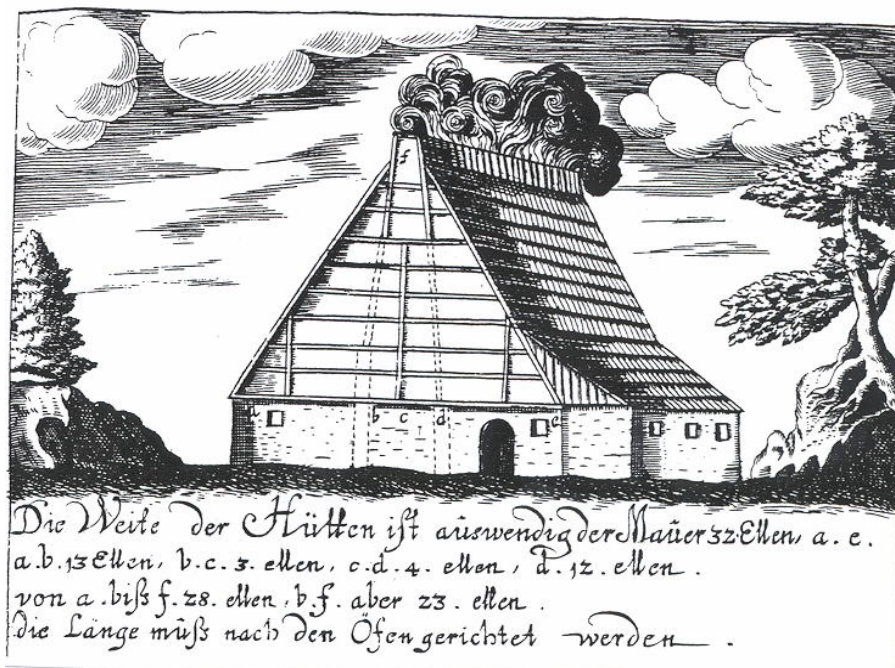 f
a b c d e
Die Weite der Hütten ist auswendig der Maüer 32 Ellen, a. e.
a.b. 13 Ellen, b.c. 3. ellen, c.d. 4. ellen, d. 12. ellen.
von a. biß f. 28. ellen, b.f. aber 23. ellen.
die Länge müß nach den Öfen gerichtet werden.